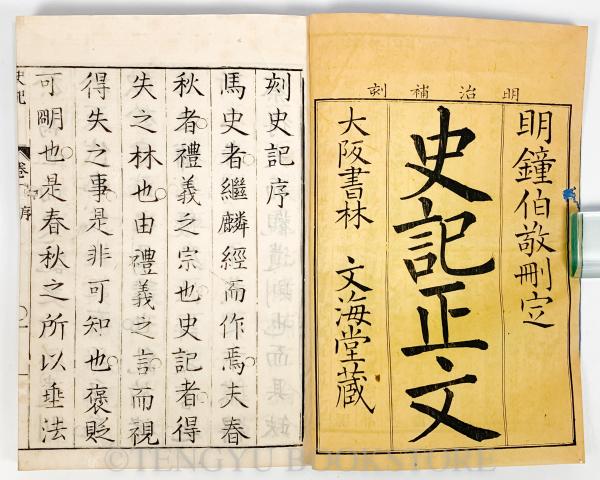 明治補刻
明鐘伯敬刪定
史記正文
大阪書林 文海堂蔵
刻史記序
馬史者繼麟經而作焉夫春
秋者禮義之宗也史記者得
失之林也由禮義之言而視
得失之事是非可知也褒貶
可明也是春秋之所以垂法
史記
序
©TENGYU BOOKSTORE